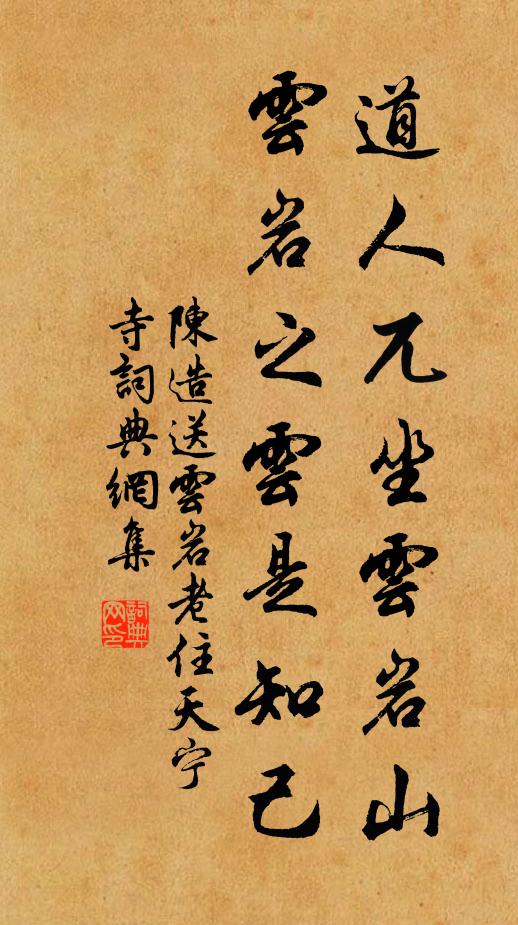 道人兀坐雲岩山
雲岩之雲是知己
陳造送雲岩老住天宁
寺詞典網集
詞典网印